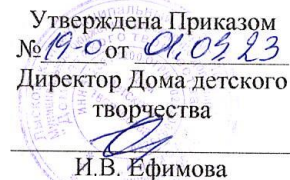 Утверждена Приказом
№ 19-0 от 01.09.23
Директор Дома детского
творчества
И.В. Ефимова